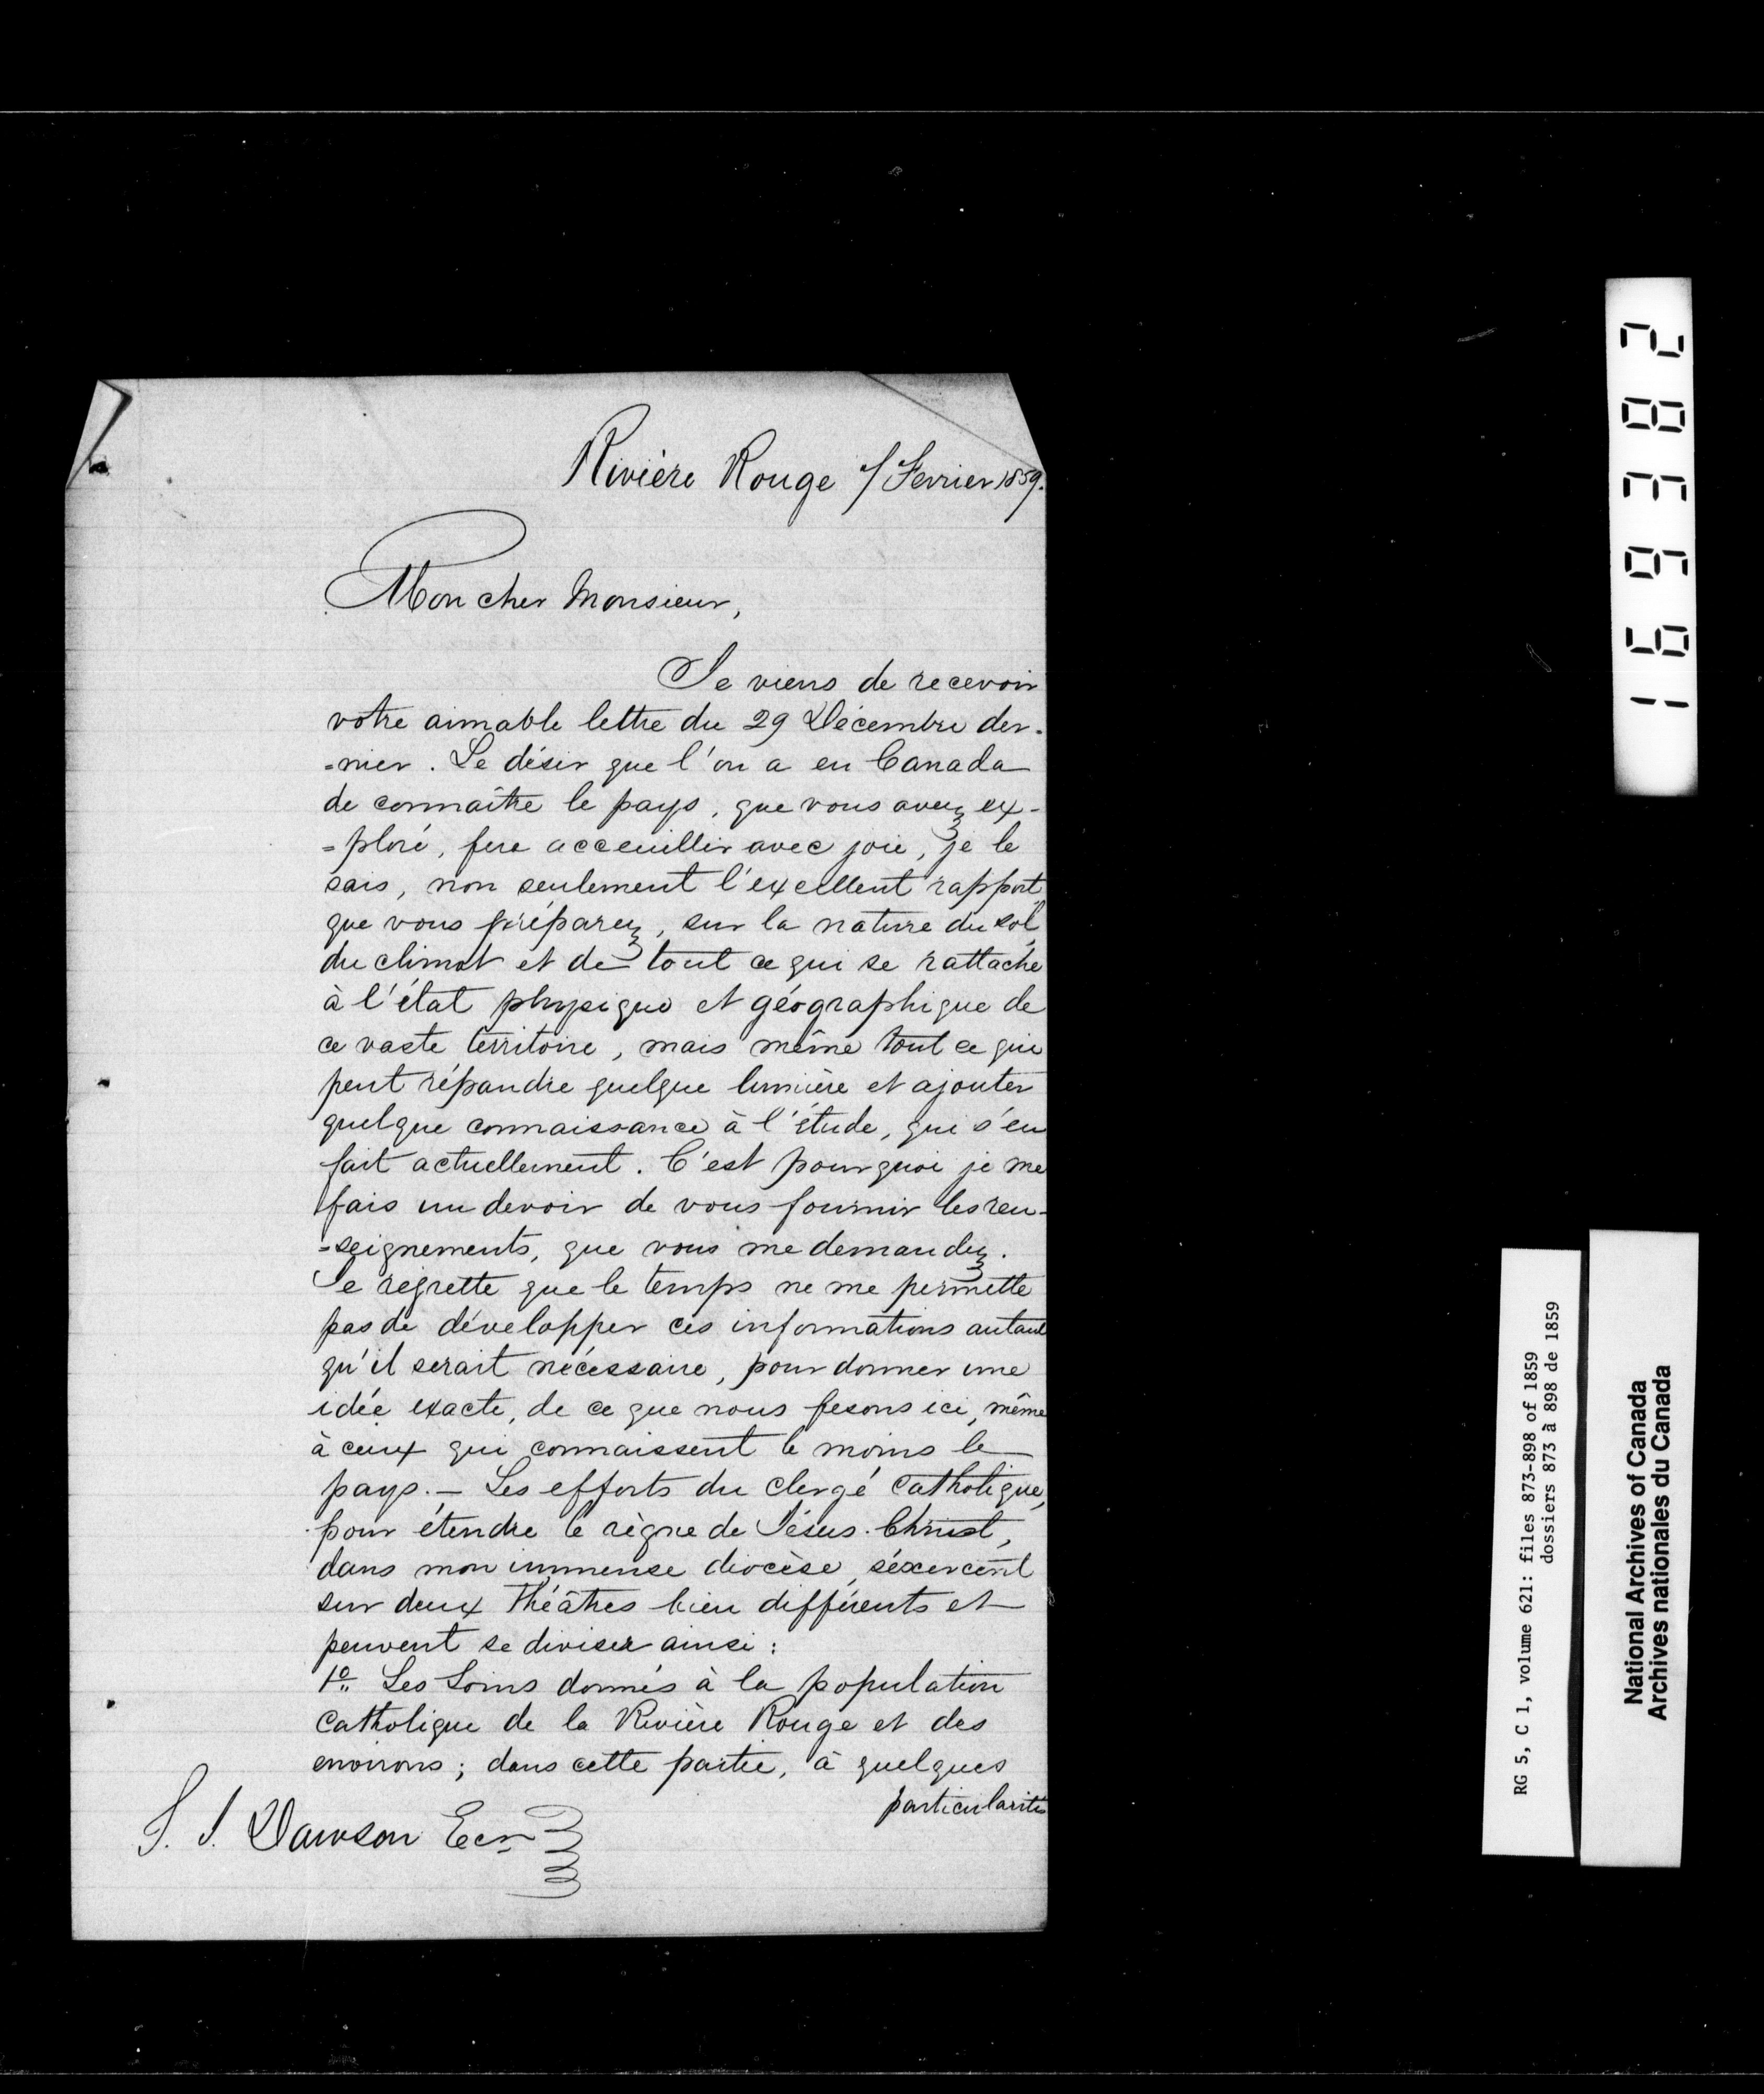 Rivière Rouge 7/ Fevrier 1859.
Mon cher Monsieur,
Je viens de recevoir
votre aimable lettre du 29 Décembre der-
=nier. Le désir que l'on a en Canada
de connaître le pays, que vous avez ex-
=ploré, fera acceuillir avec joie, je le
sais, non seulement l'excellent rapport
que vous préparez, sur la nature du sol,
du climat et de tout ce qui se rattache
à l'état physique et géographique de
ce vaste territoire, mais même tout ce qui
peut répandre quelque lumière et ajouter
quelque connaissance à l'étude, qui s'en
fait actuellement. C'est pourquoi je me
fais un devoir de vous fournir les ren-
=seignements, que vous me demandez.
Je régrette que le temps ne me permette
pas de développer ces informations autant
qu'il serait nécessaire, pour donner une
idée exacte, de ce que nous fesons ici, même
à ceux qui connaissent le moins le
pays. — Les efforts du Clergé Catholique,
pour étendre le règne de Jésus-Christ,
dans mon immense diocèse, séxercent
sur deux théâtres bien différents et
peuvent se diviser ainsi :
1º. Les Soins donnés à la population
Catholique de la Rivière Rouge et des
environs ; dans cette partie, à quelques
particularités
S. J. Dawson Ecr
169382
RG 5, C 1, volume 621: files 873-898 of 1859
dossiers 873 à 898 de 1859
National Archives of Canada
Archives nationales du Canada